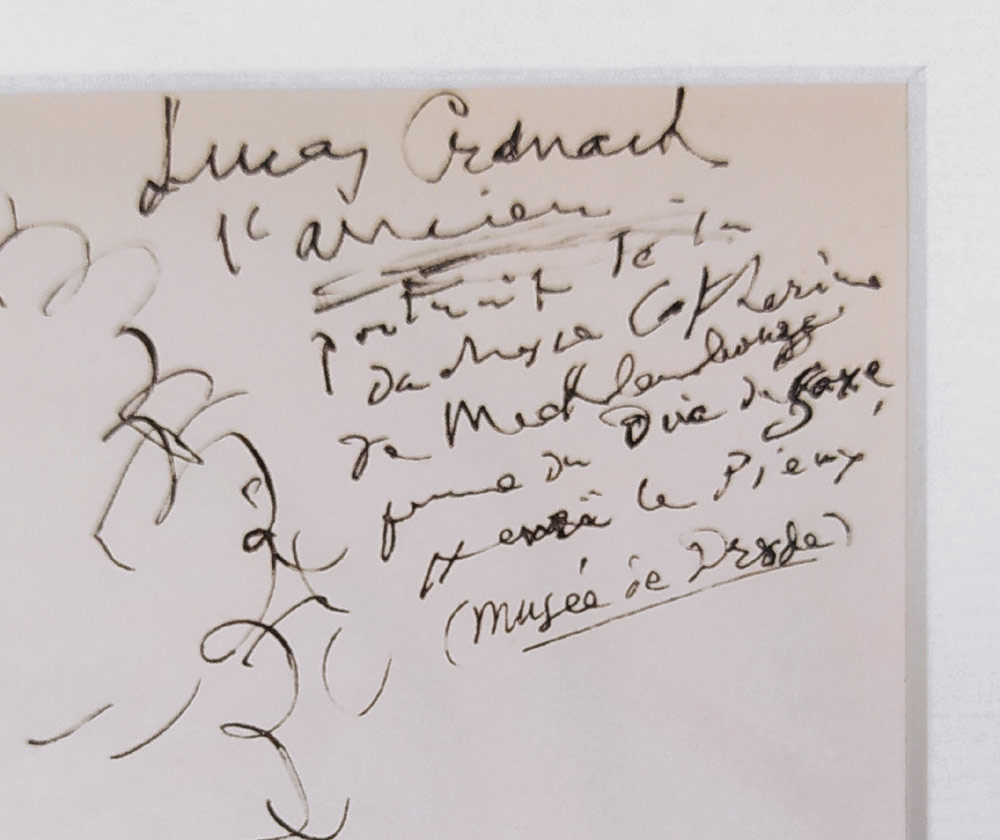 Lucas Cranach
l'ancien
portrait de la
duchesse Catherine
de Mecklembourg
femme du Duc de Saxe,
Henri le Pieux
(Musée de Dresde)